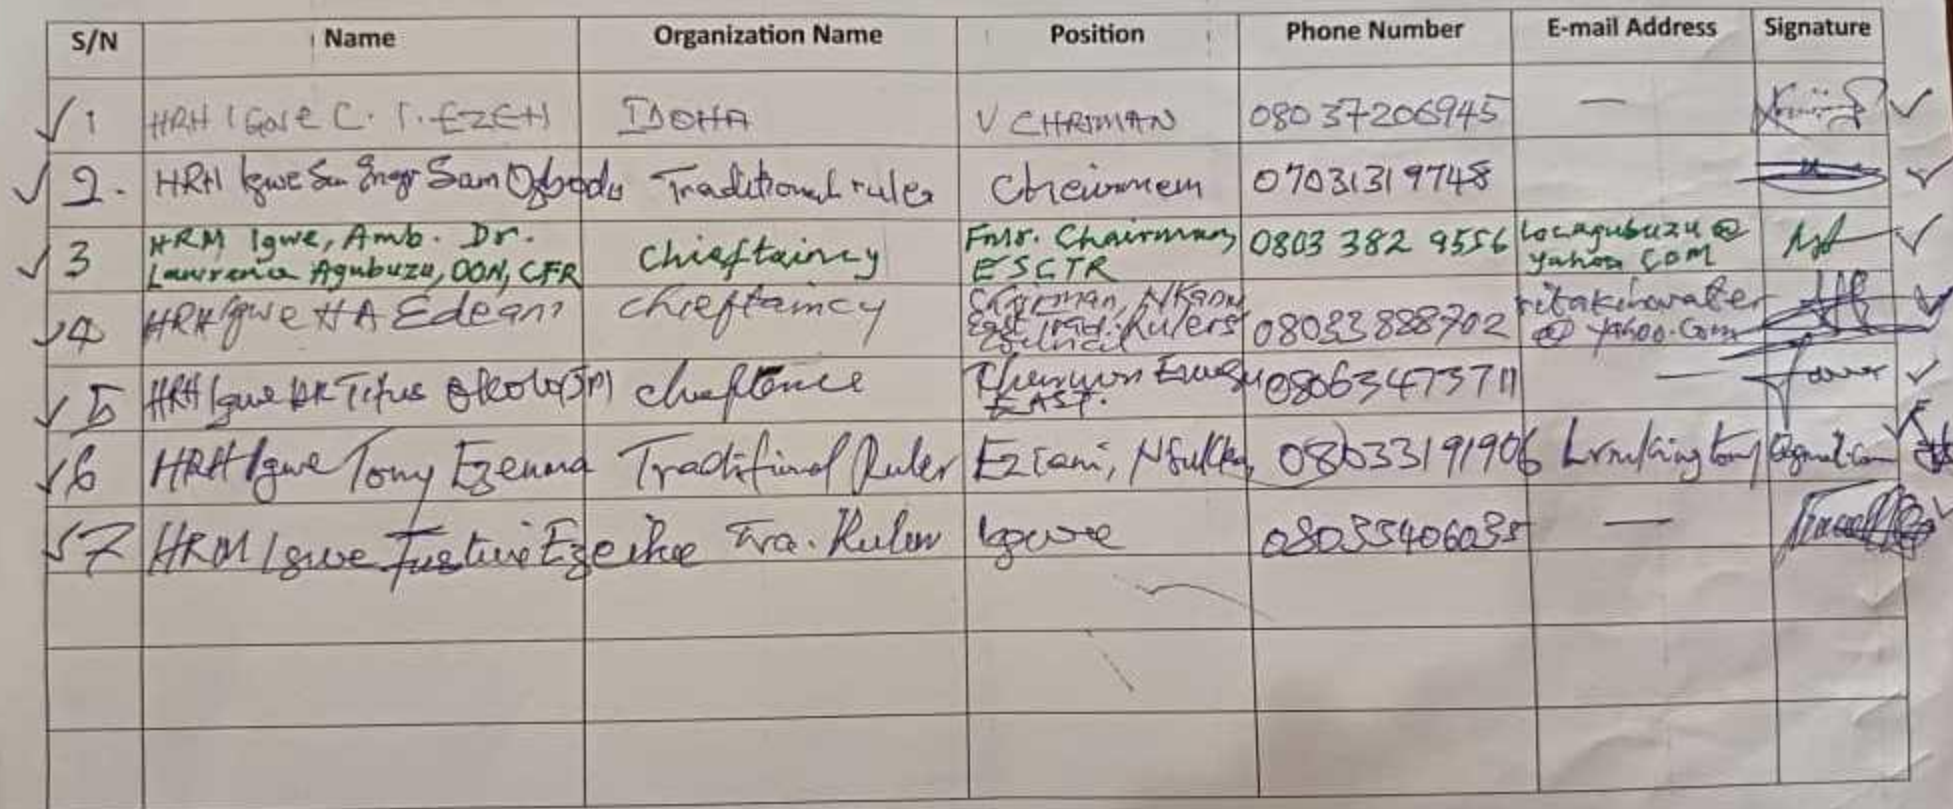 S/N Name Organization Name Position Phone Number E-mail Address Signature
1 HRH IGWE C. I. EZEH IDOHA V CHRIMAN 08037206945 —
2. HRH Igwe Engr Sam Ogbodu Traditional ruler 07031319748
3 HRM Igwe, Amb. Dr. Lawrence Agubuzu, OON, CFR Chieftaincy Fmr. Chairman, ESCTR 0803 382 9556 Locagubuzu@ yahoo.com
4 HRH Igwe H A Edeani chieftaincy Chairman, Nkanu East Trad. Rulers 08033888702 @ yahoo.com
5 HRH Igwe DR Titus Okolo (JP) EAST. 08063473711 —
6 HRH Igwe Tony Ezenna Traditional Ruler Eziani, Nsukka, 08033191906 @gmail.com
7 HRM Igwe Ezeike Tra. Ruler Igwe 08035406035 —